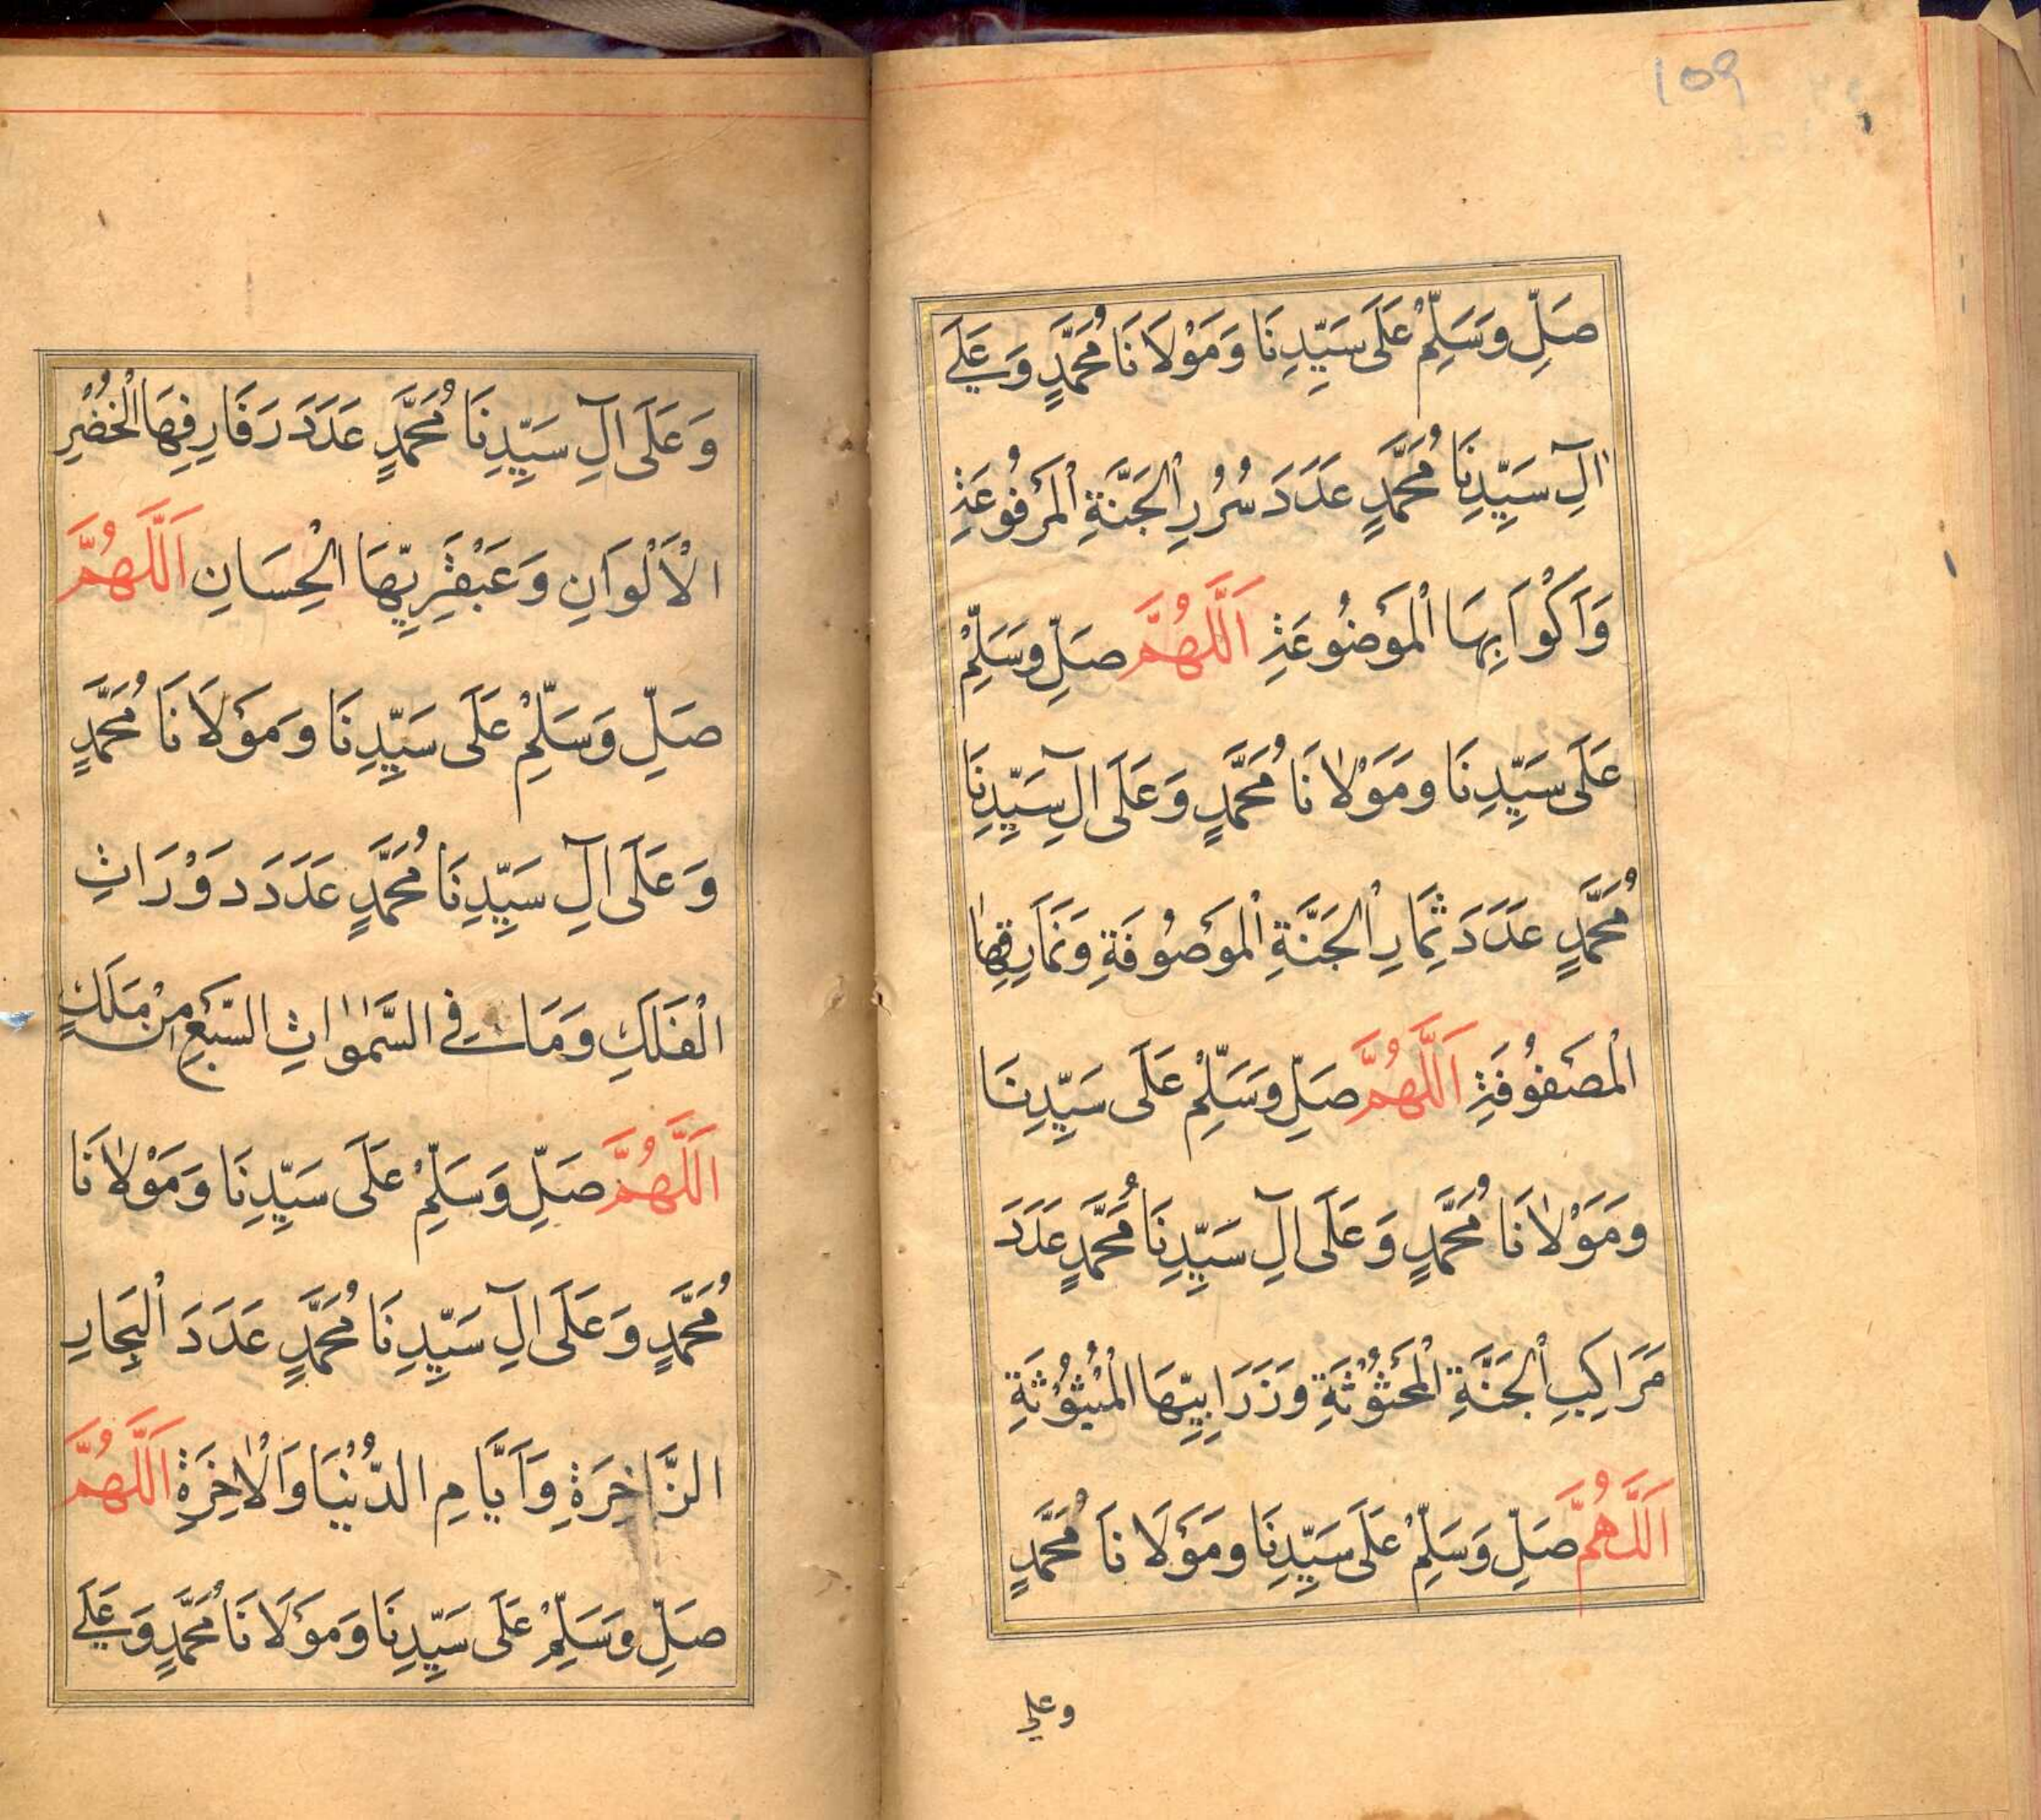 109
صَلِّ وَسَلِّمْ عَلَى سَيِّدِنَا وَمَوْلَانَا مُحَمَّدٍ وَعَلَى
اٰلِ سَيِّدِنَا مُحَمَّدٍ عَدَدَ سُرُرِ الْجَنَّةِ الْمَرْفُوعَةِ
وَاَكْوَابِهَا الْمَوْضُوعَةِ اَللّٰهُمَّ صَلِّ وَسَلِّمْ
عَلَى سَيِّدِنَا وَمَوْلَانَا مُحَمَّدٍ وَعَلَى آلِ سَيِّدِنَا
مُحَمَّدٍ عَدَدَ ثِمَارِ الْجَنَّةِ الْمَوْصُوفَةِ وَنَمَارِقِهَا
الْمَصْفُوفَةِ اَللّٰهُمَّ صَلِّ وَسَلِّمْ عَلَى سَيِّدِنَا
وَمَوْلَانَا مُحَمَّدٍ وَعَلَى آلِ سَيِّدِنَا مُحَمَّدٍ عَدَدَ
مَرَاكِبِ الْجَنَّةِ الْمَحْثُوثَةِ وَزَرَابِيِّهَا الْمَبْثُوثَةِ
اَللّٰهُمَّ صَلِّ وَسَلِّمْ عَلَى سَيِّدِنَا وَمَوْلَانَا مُحَمَّدٍ
وعلى
وَعَلَى آلِ سَيِّدِنَا مُحَمَّدٍ عَدَدَ رَفَارِفِهَا الْخُضْرِ
الْاَلْوَانِ وَعَبْقَرِيِّهَا الْحِسَانِ اَللّٰهُمَّ
صَلِّ وَسَلِّمْ عَلَى سَيِّدِنَا وَمَوْلَانَا مُحَمَّدٍ
وَعَلَى آلِ سَيِّدِنَا مُحَمَّدٍ عَدَدَ دَوْرَاتِ
الْفَلَكِ وَمَا فِي السَّمٰوٰاتِ السَّبْعِ مِنْ مَلَكٍ
اَللّٰهُمَّ صَلِّ وَسَلِّمْ عَلَى سَيِّدِنَا وَمَوْلَانَا
مُحَمَّدٍ وَعَلَى آلِ سَيِّدِنَا مُحَمَّدٍ عَدَدَ الْبِحَارِ
الزَّاخِرَةِ وَاَيَّامِ الدُّنْيَا وَالْاٰخِرَةِ اَللّٰهُمَّ
صَلِّ وَسَلِّمْ عَلَى سَيِّدِنَا وَمَوْلَانَا مُحَمَّدٍ وَعَلَى